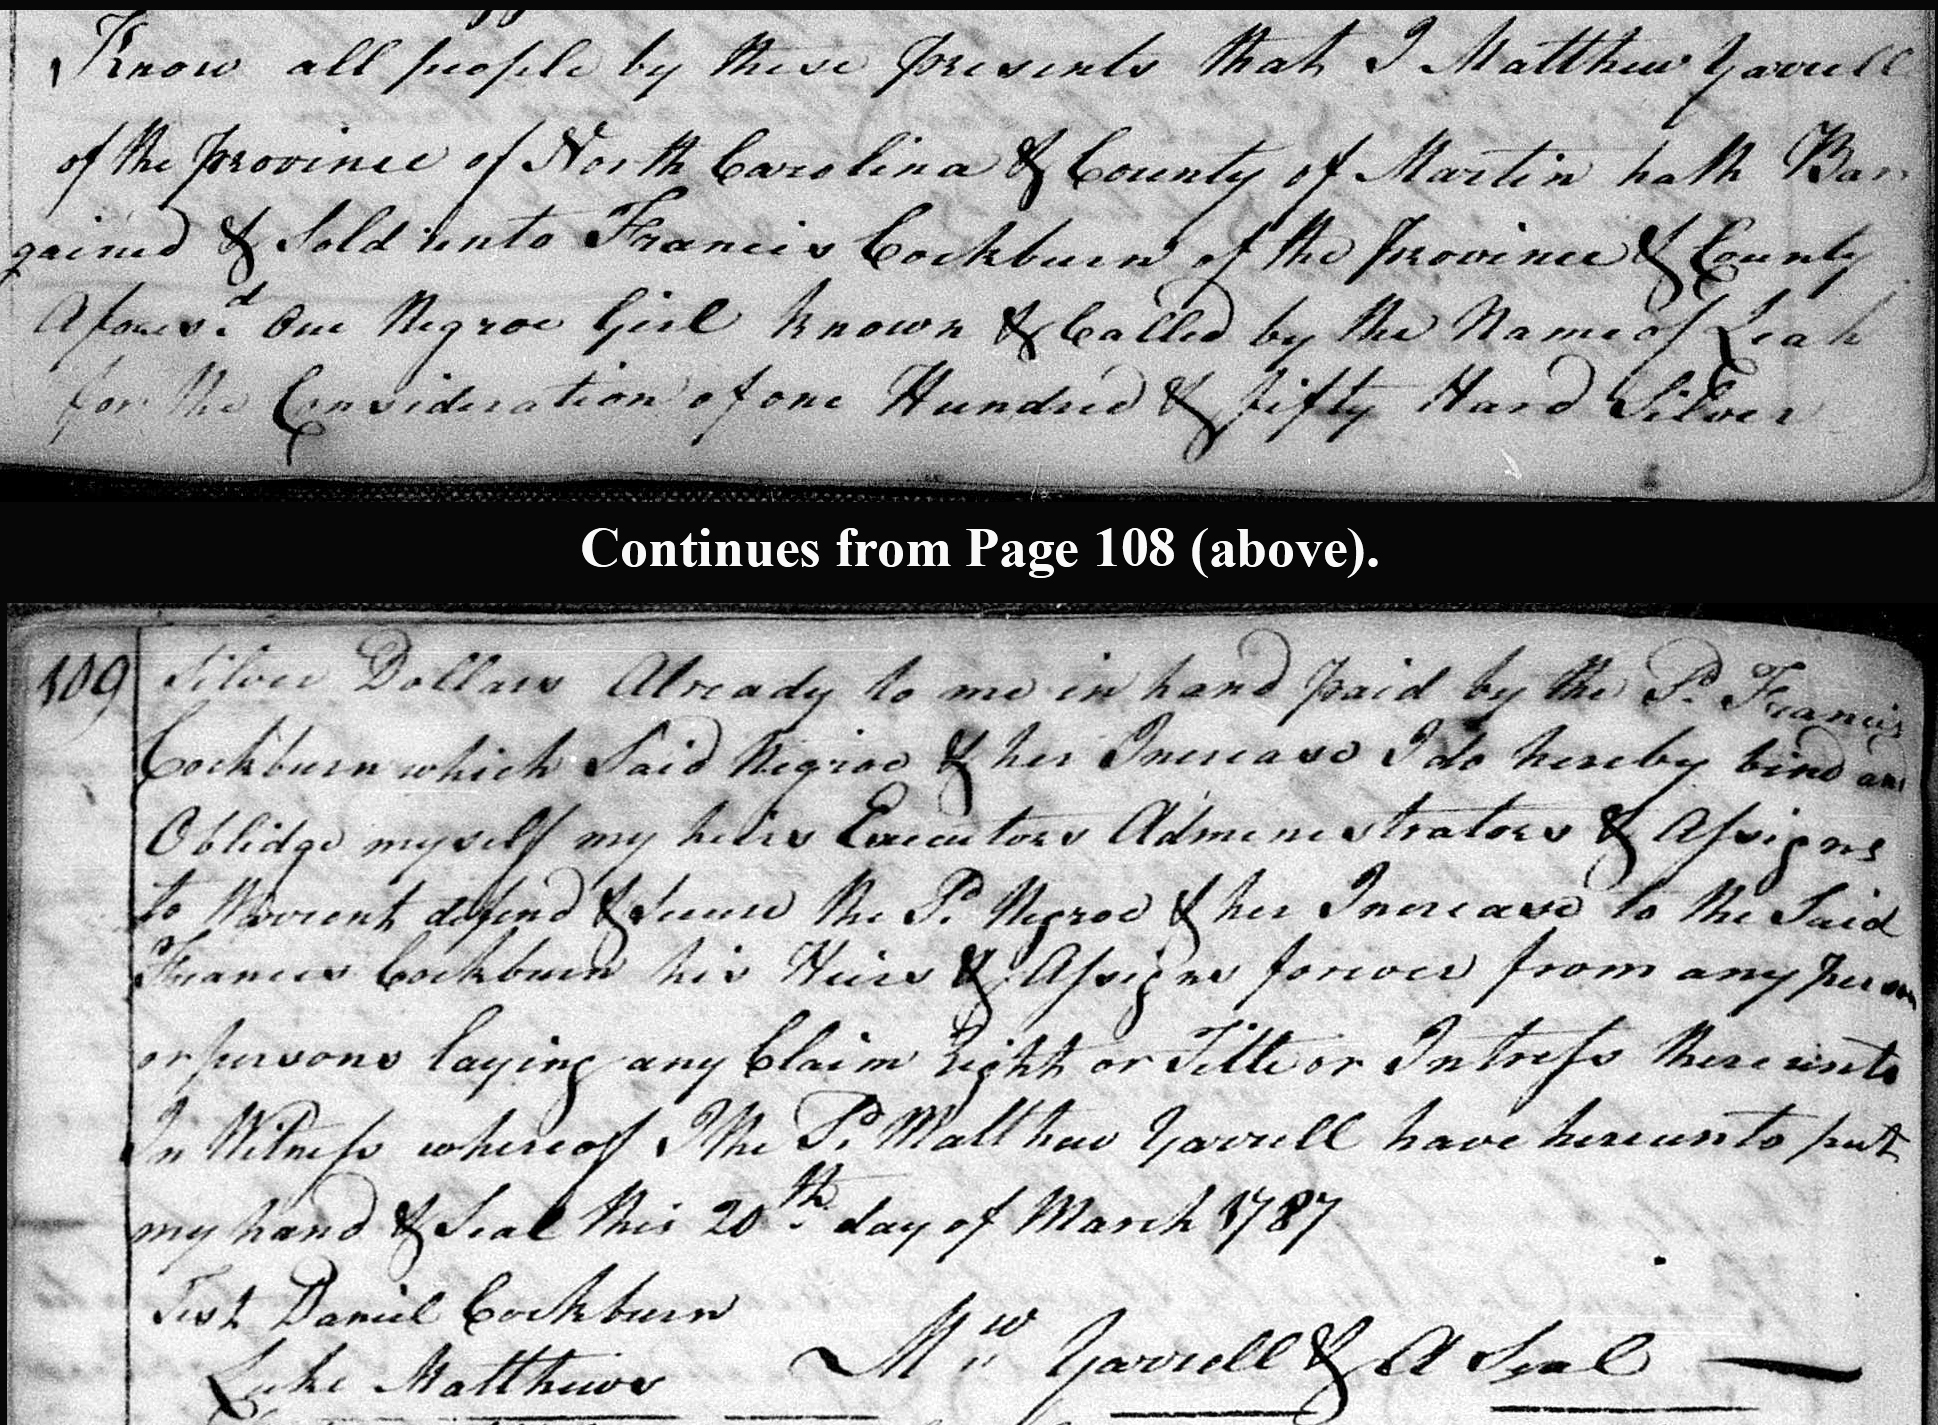 Know all people by these presents that I Matthew Yarrell
of the province of North Carolina & County of Martin hath Bar
gained & Sold unto Francis Cockburn of the Province & County
Afores.d One Negroe Girl known & Called by the Name of Leah
for the Consideration of one Hundred & fifty Hard Silver
Continues from Page 108 (above).
109
Silver Dollars Already to me in hand paid by the Sd. Francis
Cockburn which Said Negroe & her Increase I do hereby bind and
Oblidge myself my heirs Executors Admenestrators & Assigns
to Warrent defend & Secure the Sd. Negroe & her Increase to the Said
Frances Cockburn his Heirs & Assigns forever from any person
or persons laying any Claim Right or Title or Intress thereunto
In Witness whereof I the Sd. Matthew Yarrell have hereunto put
my hand & Seal this 20th. day of March 1787
Test Daniel Cockburn
Luke Matthews
Mw. Yarrell & A Seal